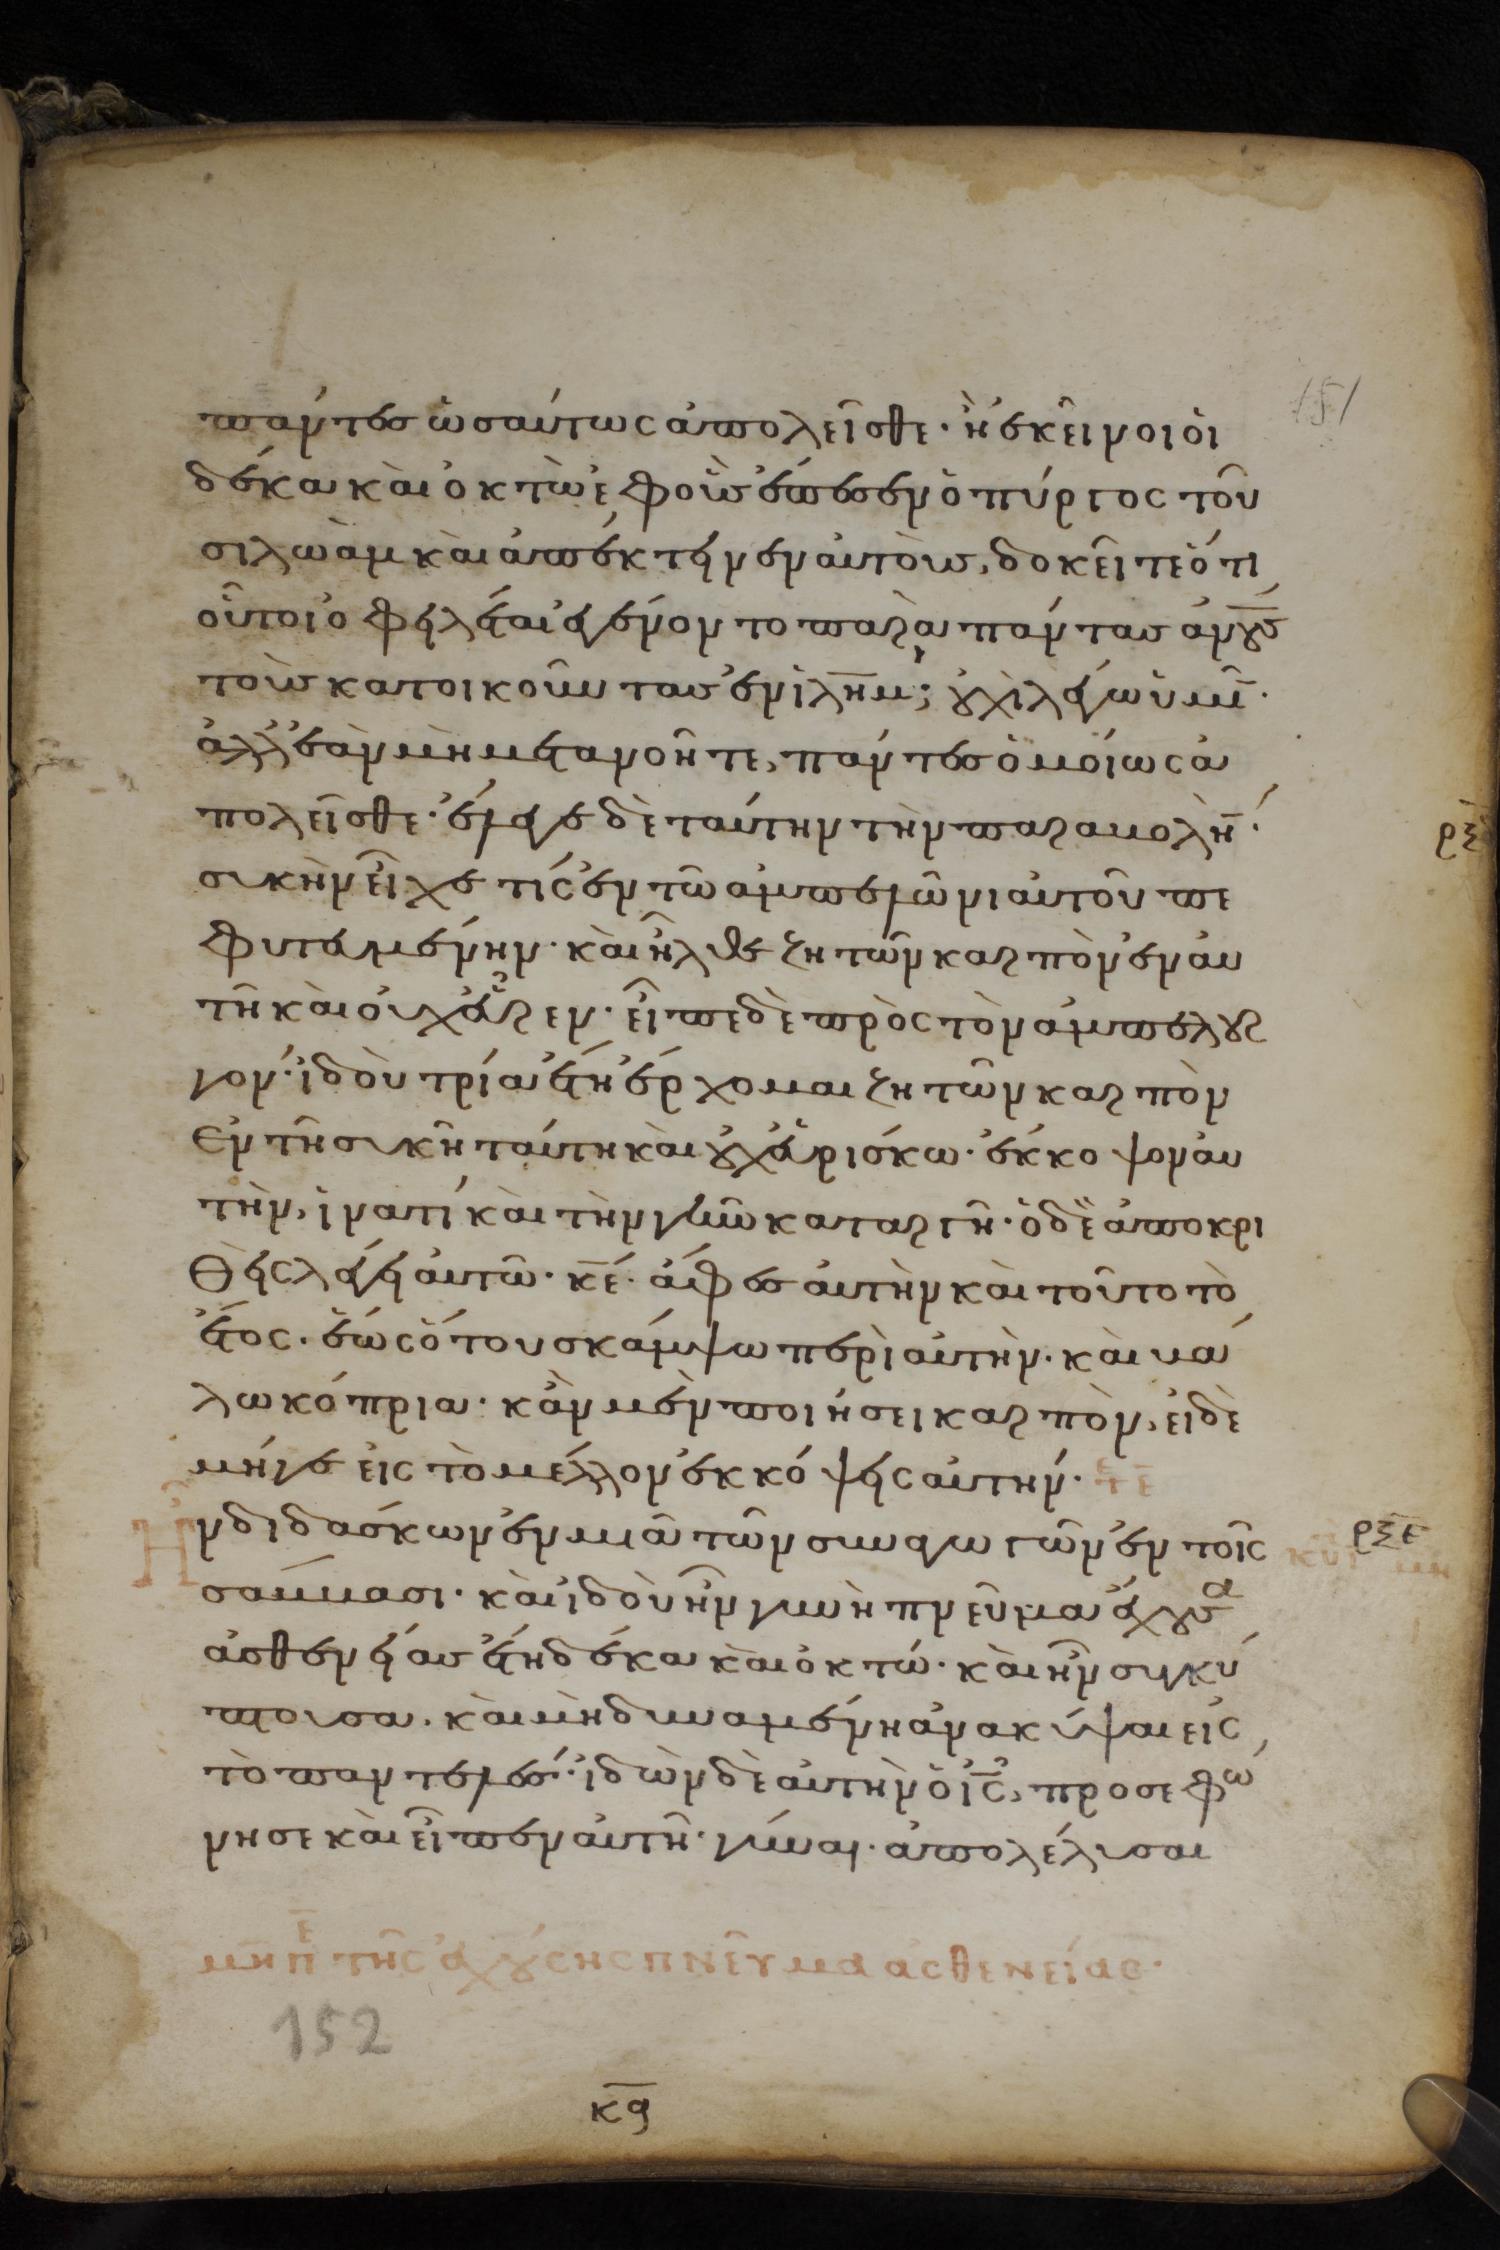 151
πάντες ὡσαύτως ἀπολεῖσθε· ἢ ἐκεῖνοι οἱ
δέκα καὶ ὀκτὼ ἐφ οὓς ἔπεσεν ὁ πύργος τοῦ
σιλωὰμ καὶ ἀπέκτεινεν αὐτοὺς, δοκεῖτε ὅτι
οὗτοι ὀφειλέται ἐγένοντο παρὰ πάντας ἀνο̅υ̅ς
τοὺς κατοικοῦντας ἐν ἰλη̅μ̅; οὐχὶ λέγω ὑμῖ̅·
ἀλλ' ἐὰν μὴ μετανοῆτε, πάντες ὁμοίως ἀ
πολεῖσθε· ἔλεγε δὲ ταύτην τὴν παραβολή̅·
συκὴν εἶχε τίς ἐν τῶ ἀμπελῶνι αὐτοῦ πε
φυτευμένην· καὶ ἦλθε ζητῶν καρπὸν ἐν αὐ
τῆ καὶ οὐχ εὗρεν· εἶπε δὲ πρὸς τὸν ἀμπελουρ
γόν· ἰδοὺ τρία ἔτη ἔρχομαι ζητῶν καρπὸν
ἐν τῆ συκῆ ταύτη καὶ οὐχ εὑρίσκω· ἔκκοψον αὐ
τὴν, ἱνατί καὶ τὴν γῆν καταργῆ· ὁ δὲ ἀποκρι
θεὶς λέγει αὐτῶ· κ̅ε̅· ἄφες αὐτὴν καὶ τοῦτο τὸ
ἔτος· ἕως ὅτου σκάψω περὶ αὐτὴν· καὶ βά
λω κόπρια· κἂν μὲν ποιήσει καρπὸν, εἰ δὲ
μήγε εἰς τὸ μέλλον ἐκκόψεις αὐτήν· τε
Ἦν διδάσκων ἐν μιᾶ τῶν συναγωγῶν ἐν τοῖς
σάββασι· καὶ ἰδοὺ ἦν γυνὴ πνεῦμα ἔχουσα
ἀσθενείας ἔτη δέκα καὶ ὀκτώ· καὶ ἦν συγκύ
πτουσα· καὶ μὴ δυναμένη ἀνακύψαι εἰς
τὸ παντελές· ἰδὼν δὲ αὐτὴν ὁ ι̅ς̅, προσεφώ
νησε καὶ εἶπεν αὐτῆ· γύναι· ἀπολέλυσαι
ρξε
μη πε τῆς ἐχούσης πνεῦμα ἀσθενείας·
152
κ̅ϥ̅